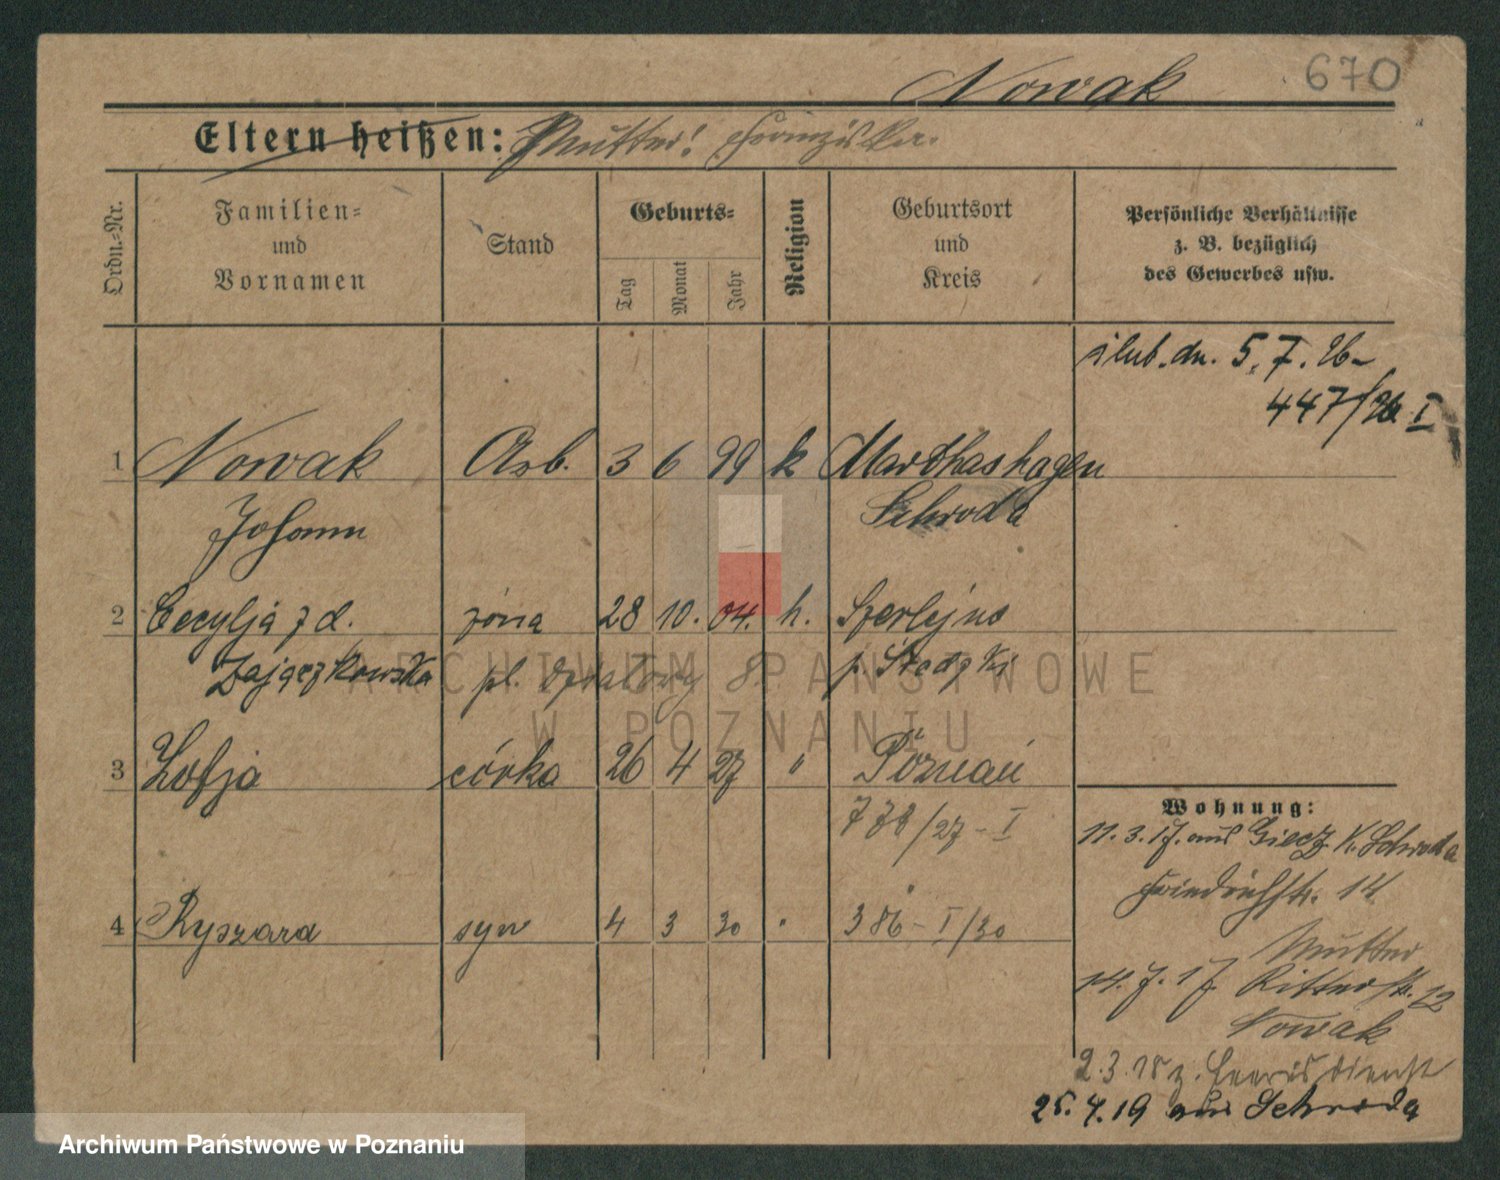 Nowak 670
Eltern heißen: Mutter: Franziska.
Ordn.-Nr.
Familien-
und
Vornamen
Stand
Geburts-
Tag
Monat
Jahr
Religion
Geburtsort
und
Kreis
Persönliche Verhältnisse
z. B. bezüglich
des Gewerbes usw.
ślub. dn. 5.7.26-
447/26 I
1 Nowak Arb. 3 6 99 k Marthashagen
Johann Schroda
2 Cecylja z d. żona 28 10. 04. k. Szerlejno
Zajączkowska pl. Działowy 8. p. Średzki
3 Zofja córka 26 4 27 " Poznań
778/27 - I
4 Ryszard syn 4 3 30 386 - I/30
Wohnung:
11.3.17. aus Giecz K. Schroda
Friedrichstr. 14
Mutter
14.7.17 Ritterstr. 12
Nowak
2.3.18 z. Heeresdienst
25.4.19 aus Schroda
ARCHIWUM PAŃSTWOWE
W POZNANIU
Archiwum Państwowe w Poznaniu